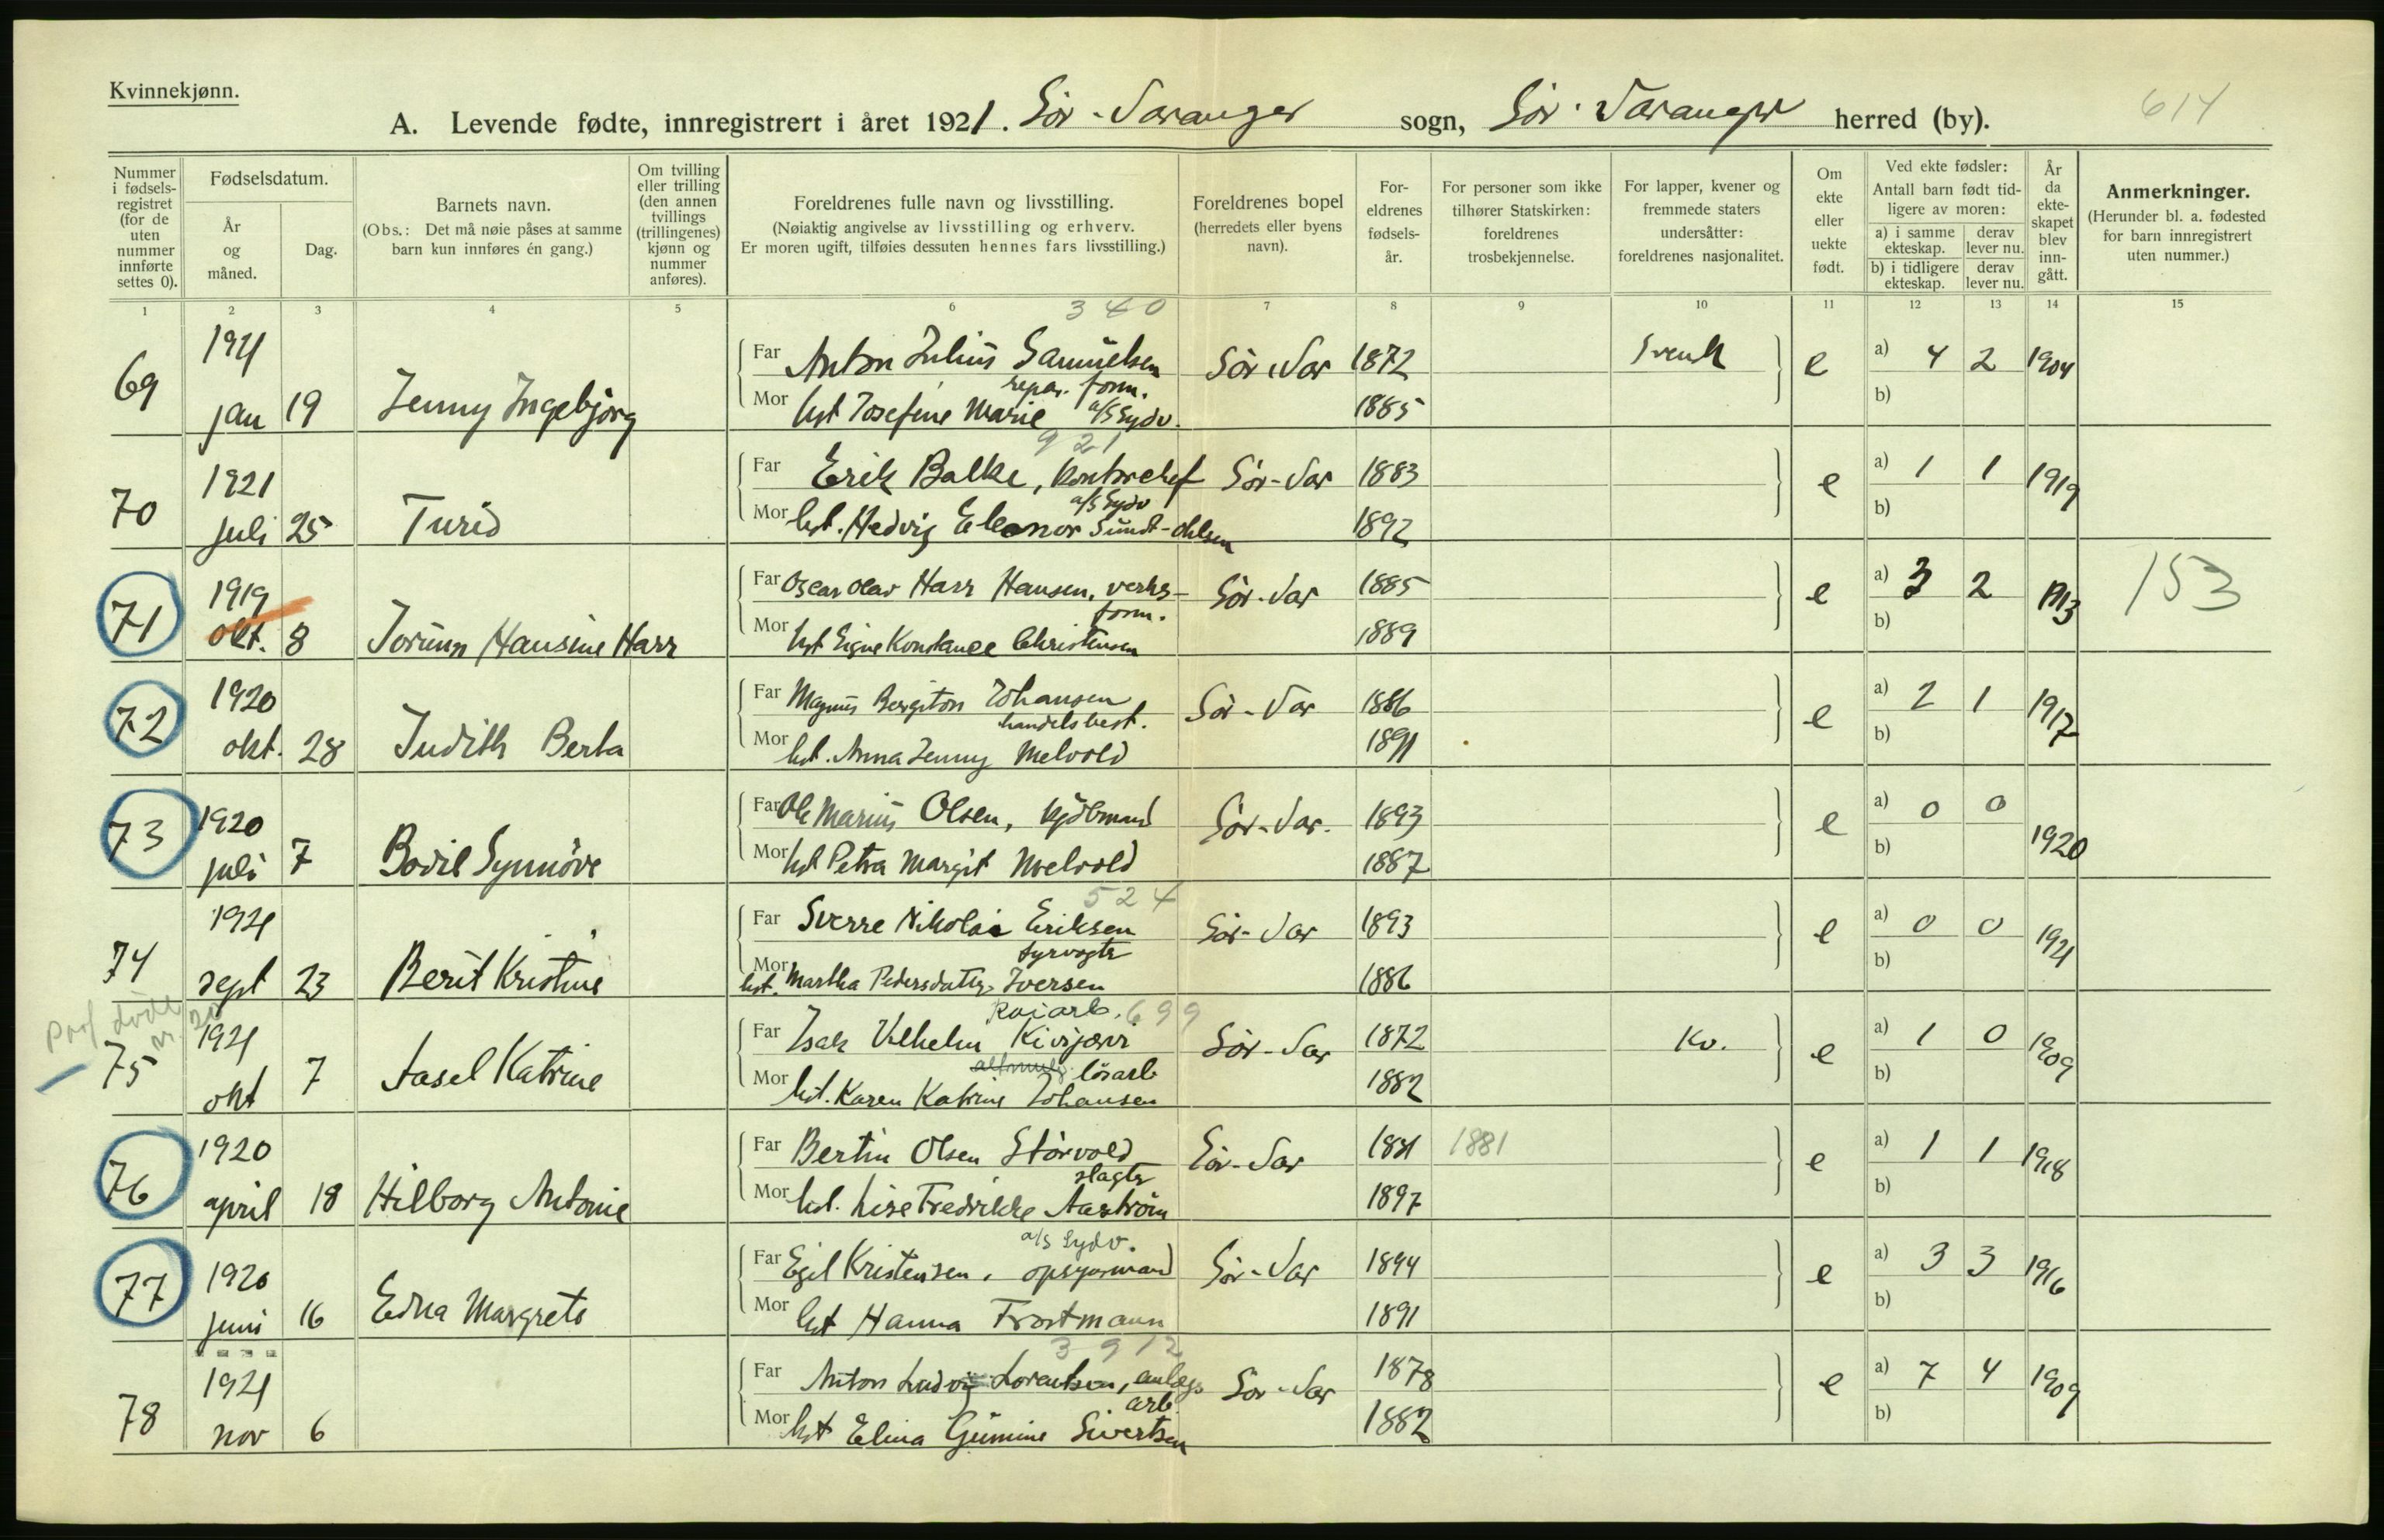 Kvinnekjønn.
614
A. Levende fødte, innregistrert i året 1921. Sør-Varanger sogn, Sør-Varanger herred (by).
Nummer i fødsels-registret (for de uten nummer innførte settes 0).
Fødselsdatum.
År og måned.
Dag.
Barnets navn.
(Obs.: Det må nøie påses at samme barn kun innføres én gang.)
Om tvilling eller trilling (den annen tvillings (trillingenes) kjønn og nummer anføres).
Foreldrenes fulle navn og livsstilling.
(Nøiaktig angivelse av livsstilling og erhverv.
Er moren ugift, tilføies dessuten hennes fars livsstilling.)
Foreldrenes bopel (herredets eller byens navn).
For-eldrenes fødsels-år.
For personer som ikke tilhører Statskirken: foreldrenes trosbekjennelse.
For lapper, kvener og fremmede staters undersåtter: foreldrenes nasjonalitet.
Om ekte eller uekte født.
Ved ekte fødsler:
Antall barn født tid-ligere av moren:
a) i samme ekteskap. derav lever nu.
b) i tidligere ekteskap. derav lever nu.
År da ekte-skapet blev inn-gått.
Anmerkninger.
(Herunder bl. a. fødested for barn innregistrert uten nummer.)
1 2 3 4 5 6 7 8 9 10 11 12 13 14 15
340
69 1921 jan 19 Jenny Ingebjørg
Far Anton Julius Samuelsen Sör-Var 1872 Svensk e a) 4 2 1904
repar. form.
Mor hst Josefine Marie a/S Sydv. 1885 b)
921
70 1921 juli 25 Turid
Far Erik Balke, kontorchef Sör-Var 1883 e a) 1 1 1919
a/S Sydv
Mor hst. Hedvig Eleonor Sundt-Ohlsen 1892 b)
71 1919 okt. 8 Jorunn Hansine Harr
Far Oscar Olav Harr Hansen, verks- Sör-Var 1885 e a) 3 2 1913 153
form.
Mor hst Signe Konstance Christensen 1889 b)
72 1920 okt. 28 Judith Berta
Far Magnus Bergiton Johansen Sör-Var 1886 e a) 2 1 1917
handelsbest.
Mor hst. Anna Jenny Melvold 1891 b)
73 1920 juli 7 Bodil Synnöve
Far Ole Marius Olsen, kjöbmand Sör-Var. 1893 e a) 0 0 1920
Mor hst Petra Margit Melvold 1887 b)
524
74 1921 sept 23 Berit Kristine
Far Sverre Nikolai Eriksen Sör-Var 1893 e a) 0 0 1921
fyrvogter
Mor hst. Martha Pedersdatter Iversen 1886 b)
nr. 20
Kaiarb. 699
75 1921 okt 7 Aasel Katrine
Far Isak Vilhelm Kivijærvi Sör-Var 1872 Kv. e a) 1 0 1909
lösarb
Mor hst. Karen Katrine Johansen 1882 b)
76 1920 april 18 Hilborg Antonie
Far Bertin Olsen Storvold Sör-Var 1881 1881 e a) 1 1 1918
slagter
Mor hst. Lise Fredrikke Aaström 1897 b)
a/s Sydv.
77 1920 juni 16 Edna Margrete
Far Egil Kristensen, opsynsmand Sör-Var 1894 e a) 3 3 1916
Mor hst Hanna Trostmann 1891 b)
3912
78 1921 nov 6
Far Anton Ludvig Lorentsen, anlægs Sör-Var 1878 e a) 7 4 1909
arb.
Mor hst Elina Gurine Sivertsen 1882 b)